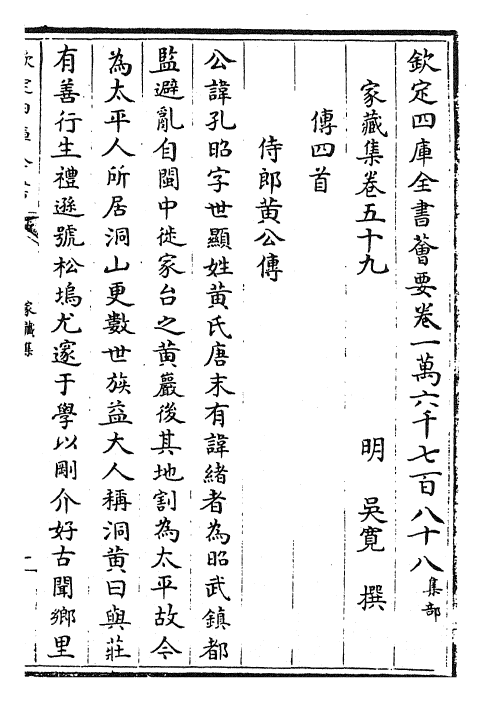 欽定四庫全書薈要卷一萬六千七百八十八集部
家藏集卷五十九 明 吳寛 撰
傳四首
侍郎黃公傳
公諱孔昭字世顯姓黃氏唐末有諱緒者為昭武鎮都
監避亂自閩中徙家台之黃巖後其地割為太平故今
為太平人所居洞山更數世族益大人稱洞黃曰與莊
有善行生禮遜號松塢尤邃于學以剛介好古聞鄉里
家藏集